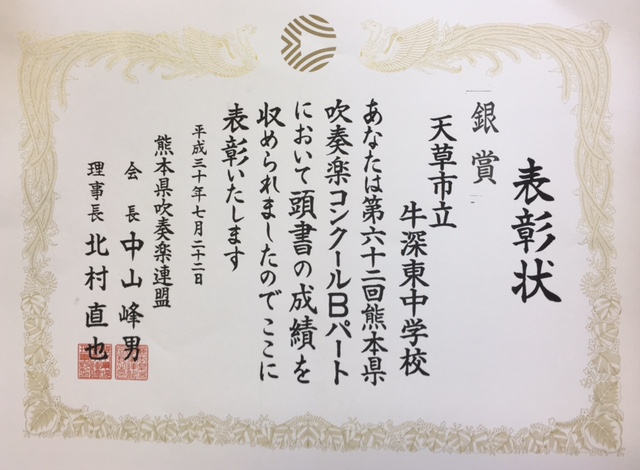 表彰状
銀賞
天草市立
牛深東中学校
あなたは第六十二回熊本県
吹奏楽コンクールBパート
において頭書の成績を
収められましたのでここに
表彰いたします
平成三十年七月二十二日
熊本県吹奏楽連盟
会長 中山峰男
理事長 北村直也